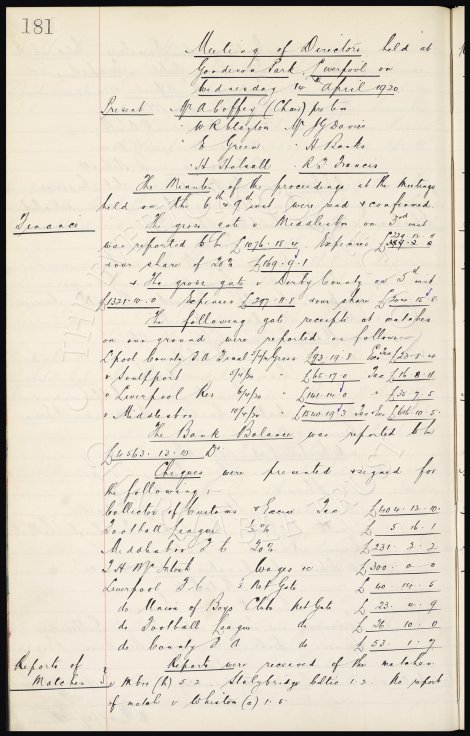 181
Meeting of Directors held at
Goodison Park, Liverpool on
Wednesday 14th April 1920
Present Mr A Coffey (Chair) pro tem
" W R Clayton Mr J G Davies
" E Green " A Banks
" H Halsall " R F Francis
The Minutes of the proceedings at the Meetings
held on the 6th & 9th inst were read & confirmed.
Finance The gross gate v Middlesbro on 3rd inst
was reported to be £1076. 18. 4 Expenses
& our share of 20% £169. 9. 1
& The gross gate v Derby County on 5th inst
£1321. 10. 0 Expenses £297. 11. 8 & our share £204. 15. 8
The following gate receipts at matches
on our ground were reported as follows:
L'pool County F A Final Gross £93. 19. 8 Ex Tax £23. 8. 4
v Southport 5/4/20 " £65. 17. 0 Tax £16. 8. 11
v Liverpool Res 6/4/20 " £141. 14. 0 " £35. 7. 5
v Middlesbro 10/4/20 " £1540. 19. 3 Tax £616. 10. 5
The Bank Balance was reported to be
£4563. 13. 10 Dr
Cheques were presented & signed for
the following:-
Collector of Customs & Excise Tax £404. 12. 10
Football League ½% £5. 16. 1
Middlesbro F C 20% £231. 3. 2
T H McIntosh Wages &c £300. 0. 0
Liverpool F. C. ½ Net Gate £40. 14. 5
do Union of Boys Clubs Net Gate £23. 4. 9
do Football League do £26. 10. 0
do County F A do £53. 1. 7
Reports of Matches Reports were received of the matches
v Mbro (h) 5-2. Stalybridge Celtic 1-2. No report
of match v Whiston (a) 1-5.